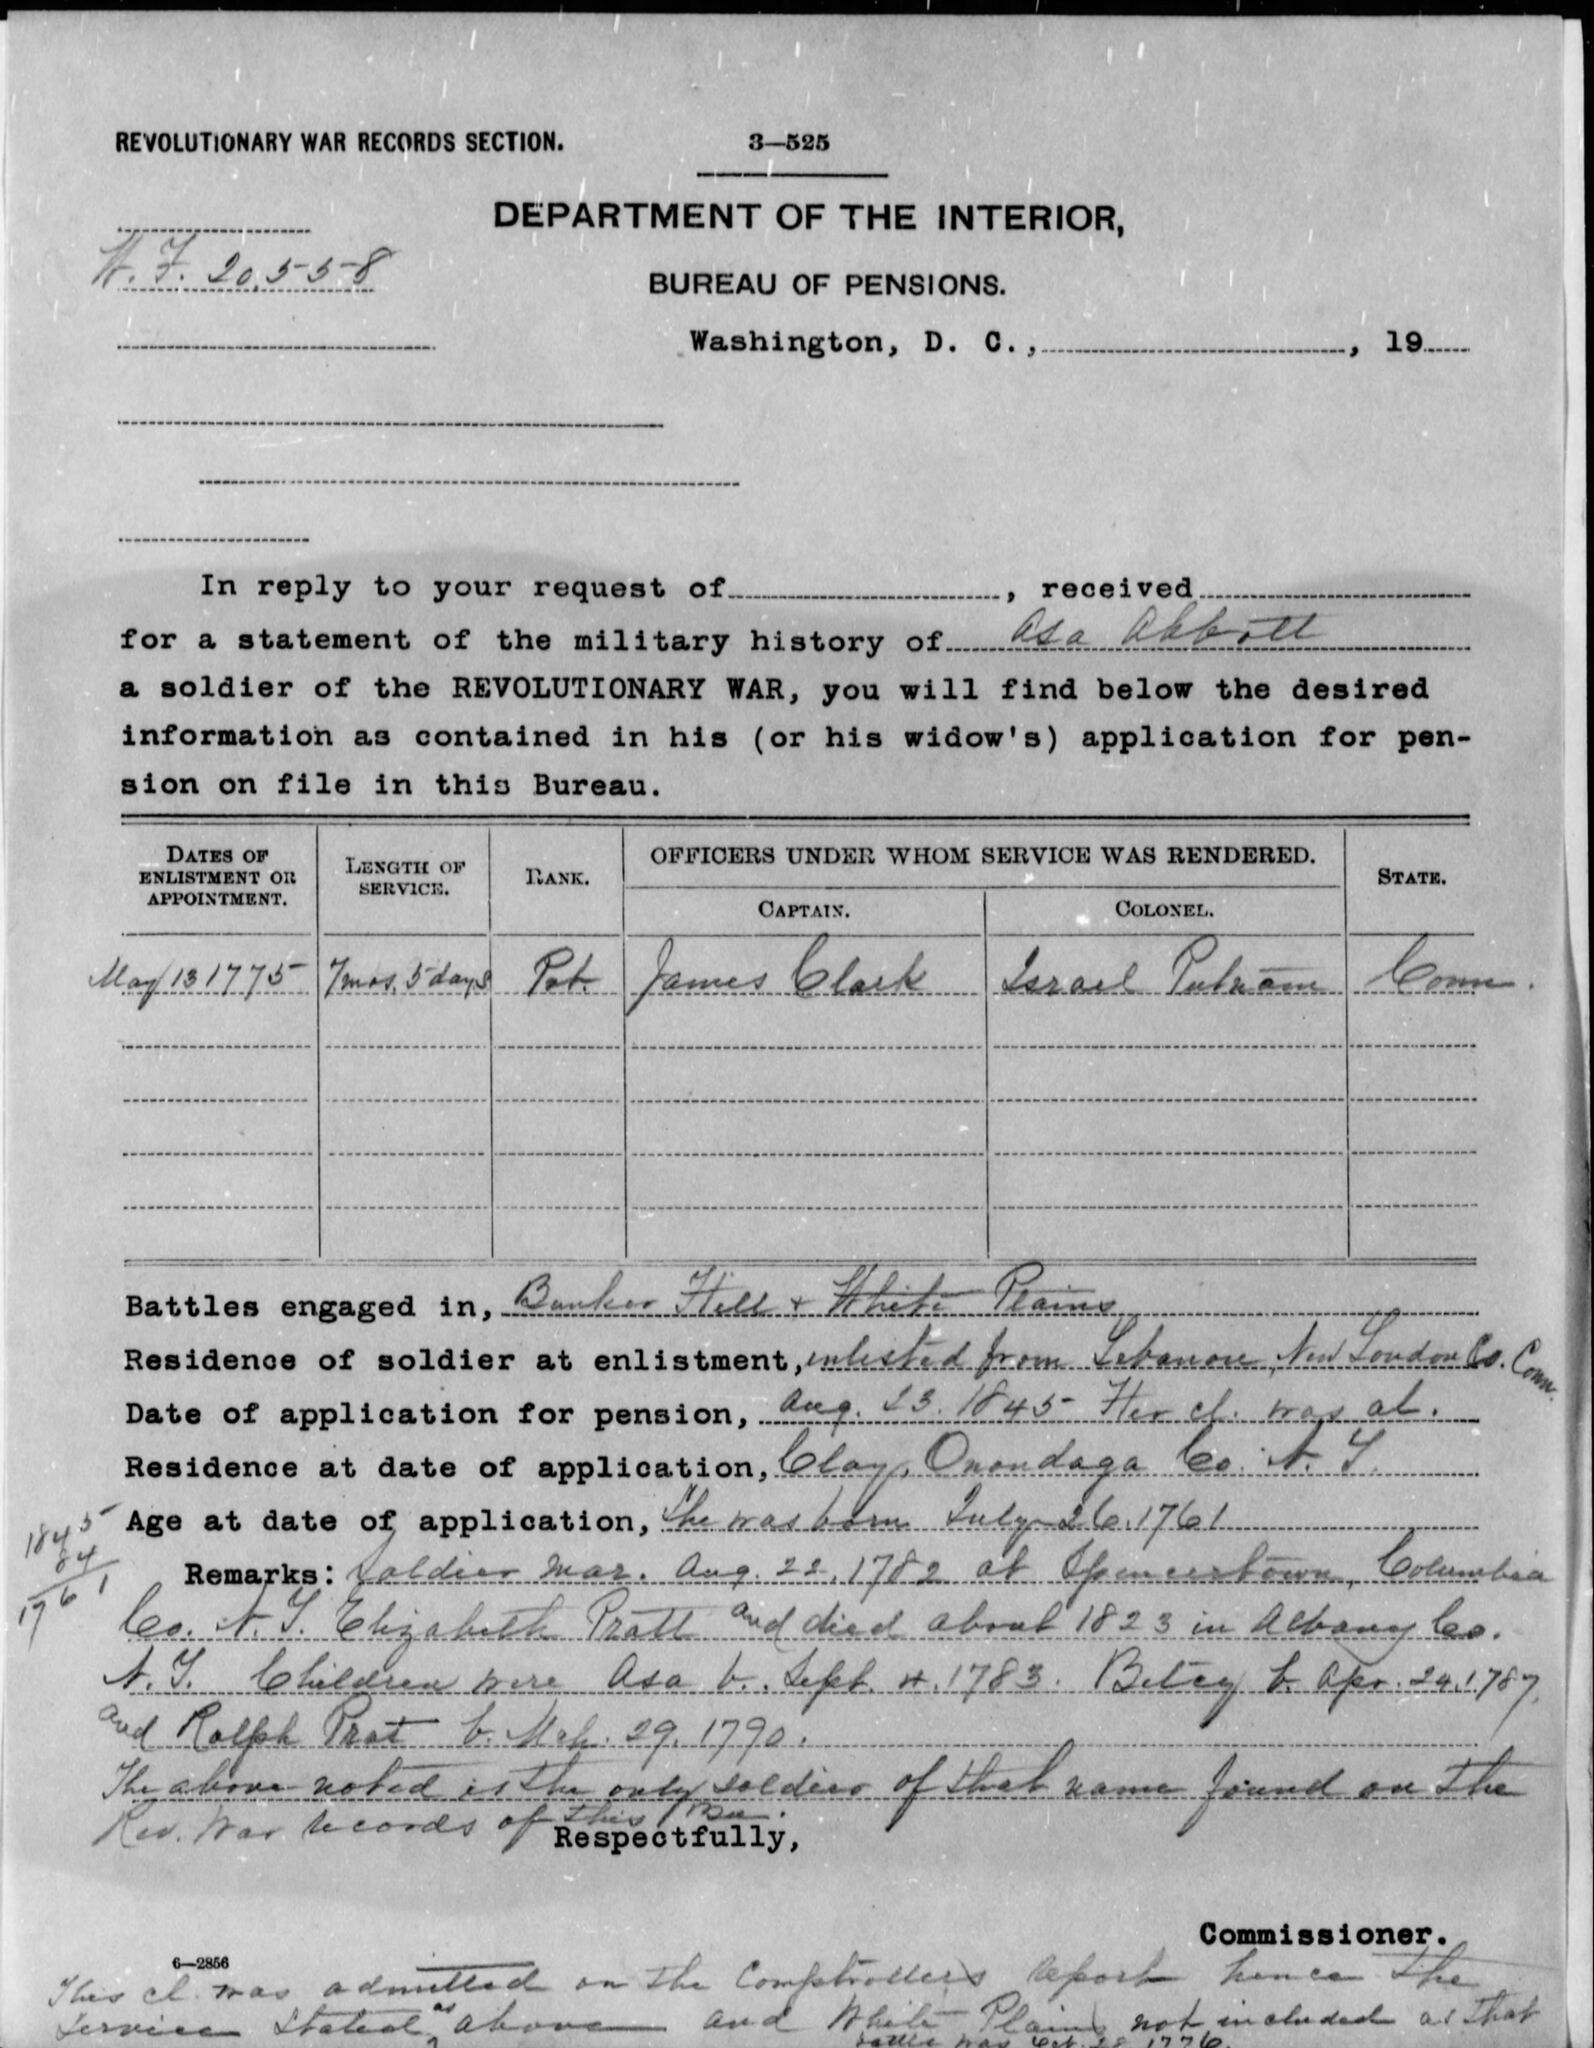 REVOLUTIONARY WAR RECORDS SECTION.
3—525
DEPARTMENT OF THE INTERIOR,
W. F. 20,558
BUREAU OF PENSIONS.
Washington, D. C., , 19
In reply to your request of , received
for a statement of the military history of Asa Abbott
a soldier of the REVOLUTIONARY WAR, you will find below the desired
information as contained in his (or his widow's) application for pen-
sion on file in this Bureau.
DATES OF ENLISTMENT OR APPOINTMENT. LENGTH OF SERVICE. RANK. OFFICERS UNDER WHOM SERVICE WAS RENDERED. STATE.
CAPTAIN. COLONEL.
May 13 1775 7 mos. 5 days Pvt. James Clark Israel Putnam Conn.
Battles engaged in, Bunker Hill + White Plains
Residence of soldier at enlistment, enlisted from Lebanon, New London Co. Conn.
Date of application for pension, Aug. 23. 1845 Her cl. was al.
Residence at date of application, Clay, Onondaga Co. N. Y.
Age at date of application, She was born July 26, 1761
1845
84
1761
Remarks: Soldier mar. Aug. 22, 1782 at Spencertown, Columbia
Co. N. Y. Elizabeth Pratt and died about 1823 in Albany Co.
N. Y. Children were Asa b. Sept. 4, 1783. Betcy b. Apr. 24, 1787,
and Ralph Prat b. Mch. 29, 1790.
The above noted is the only soldier of that name found on the
Rev. War records of this Bu.
Respectfully,
Commissioner.
6—2856
This cl. was admitted on the Comptrollers report hence the
service stated as above and White Plains not included as that
battle was Oct. 28 1776.